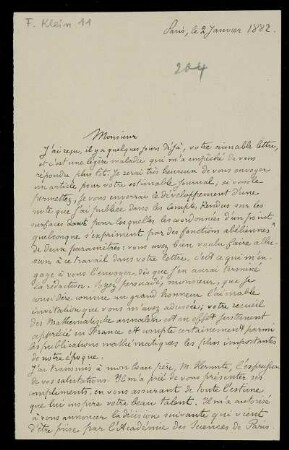 F. Klein 11
Paris, le 2 Janvier 1882.
204
Monsieur
J'ai reçu, il y a quelques jours déjà, votre aimable lettre,
et c'est une légère maladie qui m'a empêché de vous
répondre plus tôt. Je serai très heureux de vous envoyer
un article pour votre estimable journal, si vous le
permettez, je vous enverrai le développement d'une
note que j'ai publiée dans les Comptes Rendus sur les
surfaces pour lesquelles les coordonnées d'un point
quelconque s'expriment par des fonctions abéliennes
de deux paramètres; vous avez bien voulu faire allu-
sion à ce travail dans votre lettre, c'est ce qui m'en-
gage à vous l'envoyer, dès que j'en aurai terminé
la rédaction. Soyez persuadé, monsieur, que je
considère comme un grand honneur l'aimable
invitation que vous m'avez adressée; votre recueil
des Mathematische Annalen est en effet justement
apprécié en France et compte certainement parmi
les publications mathématiques les plus importantes
de notre époque.
J'ai transmis à mon beau père, M. Hermite, l'expression
de vos salutations. Il m'a prié de vous présenter ses
compliments, en vous assurant de toute l'estime
que lui inspire votre beau talent. Il m'a autorisé
à vous annoncer la décision suivante que vient
d'être prise par l'Académie des Sciences de Paris